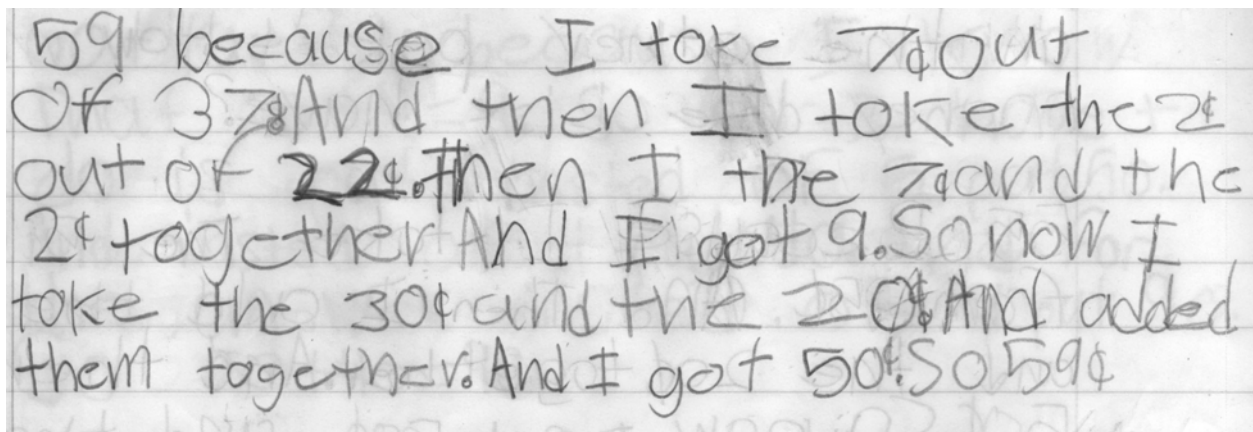 59 because I toke 7¢ out
Of 37¢ And then I toke the 2¢
out of 22¢. Then I the 7¢ and the
2¢ together And I got 9. So now I
toke the 30¢ and the 20¢ And added
them together. And I got 50¢. So 59¢